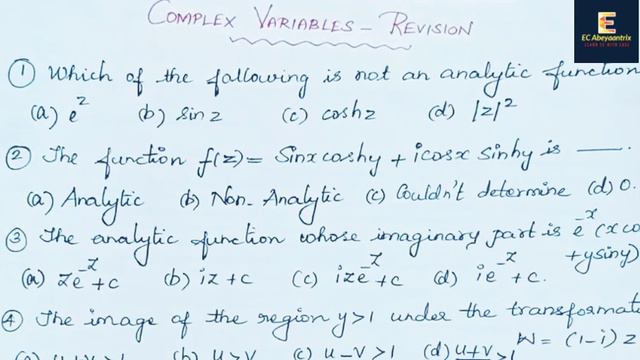 COMPLEX VARIABLES - REVISION
E
EC Abeyaantrix
LEARN EC WITH EASE
① Which of the following is not an analytic function
(a) e^z (b) sin z (c) cosh z (d) |z|²
② The function f(z) = Sinx coshy + i cosx Sinhy is ——.
(a) Analytic (b) Non-Analytic (c) Couldn't determine (d) 0.
③ The analytic function whose imaginary part is e^-x (x co
+ y siny)
(a) ze^-z + c (b) iz + c (c) ize^-z + c (d) ie^-z + c.
④ The image of the region y>1 under the transformat
W = (1-i) z
(b) u>v (c) u-v>1 (d) u+v